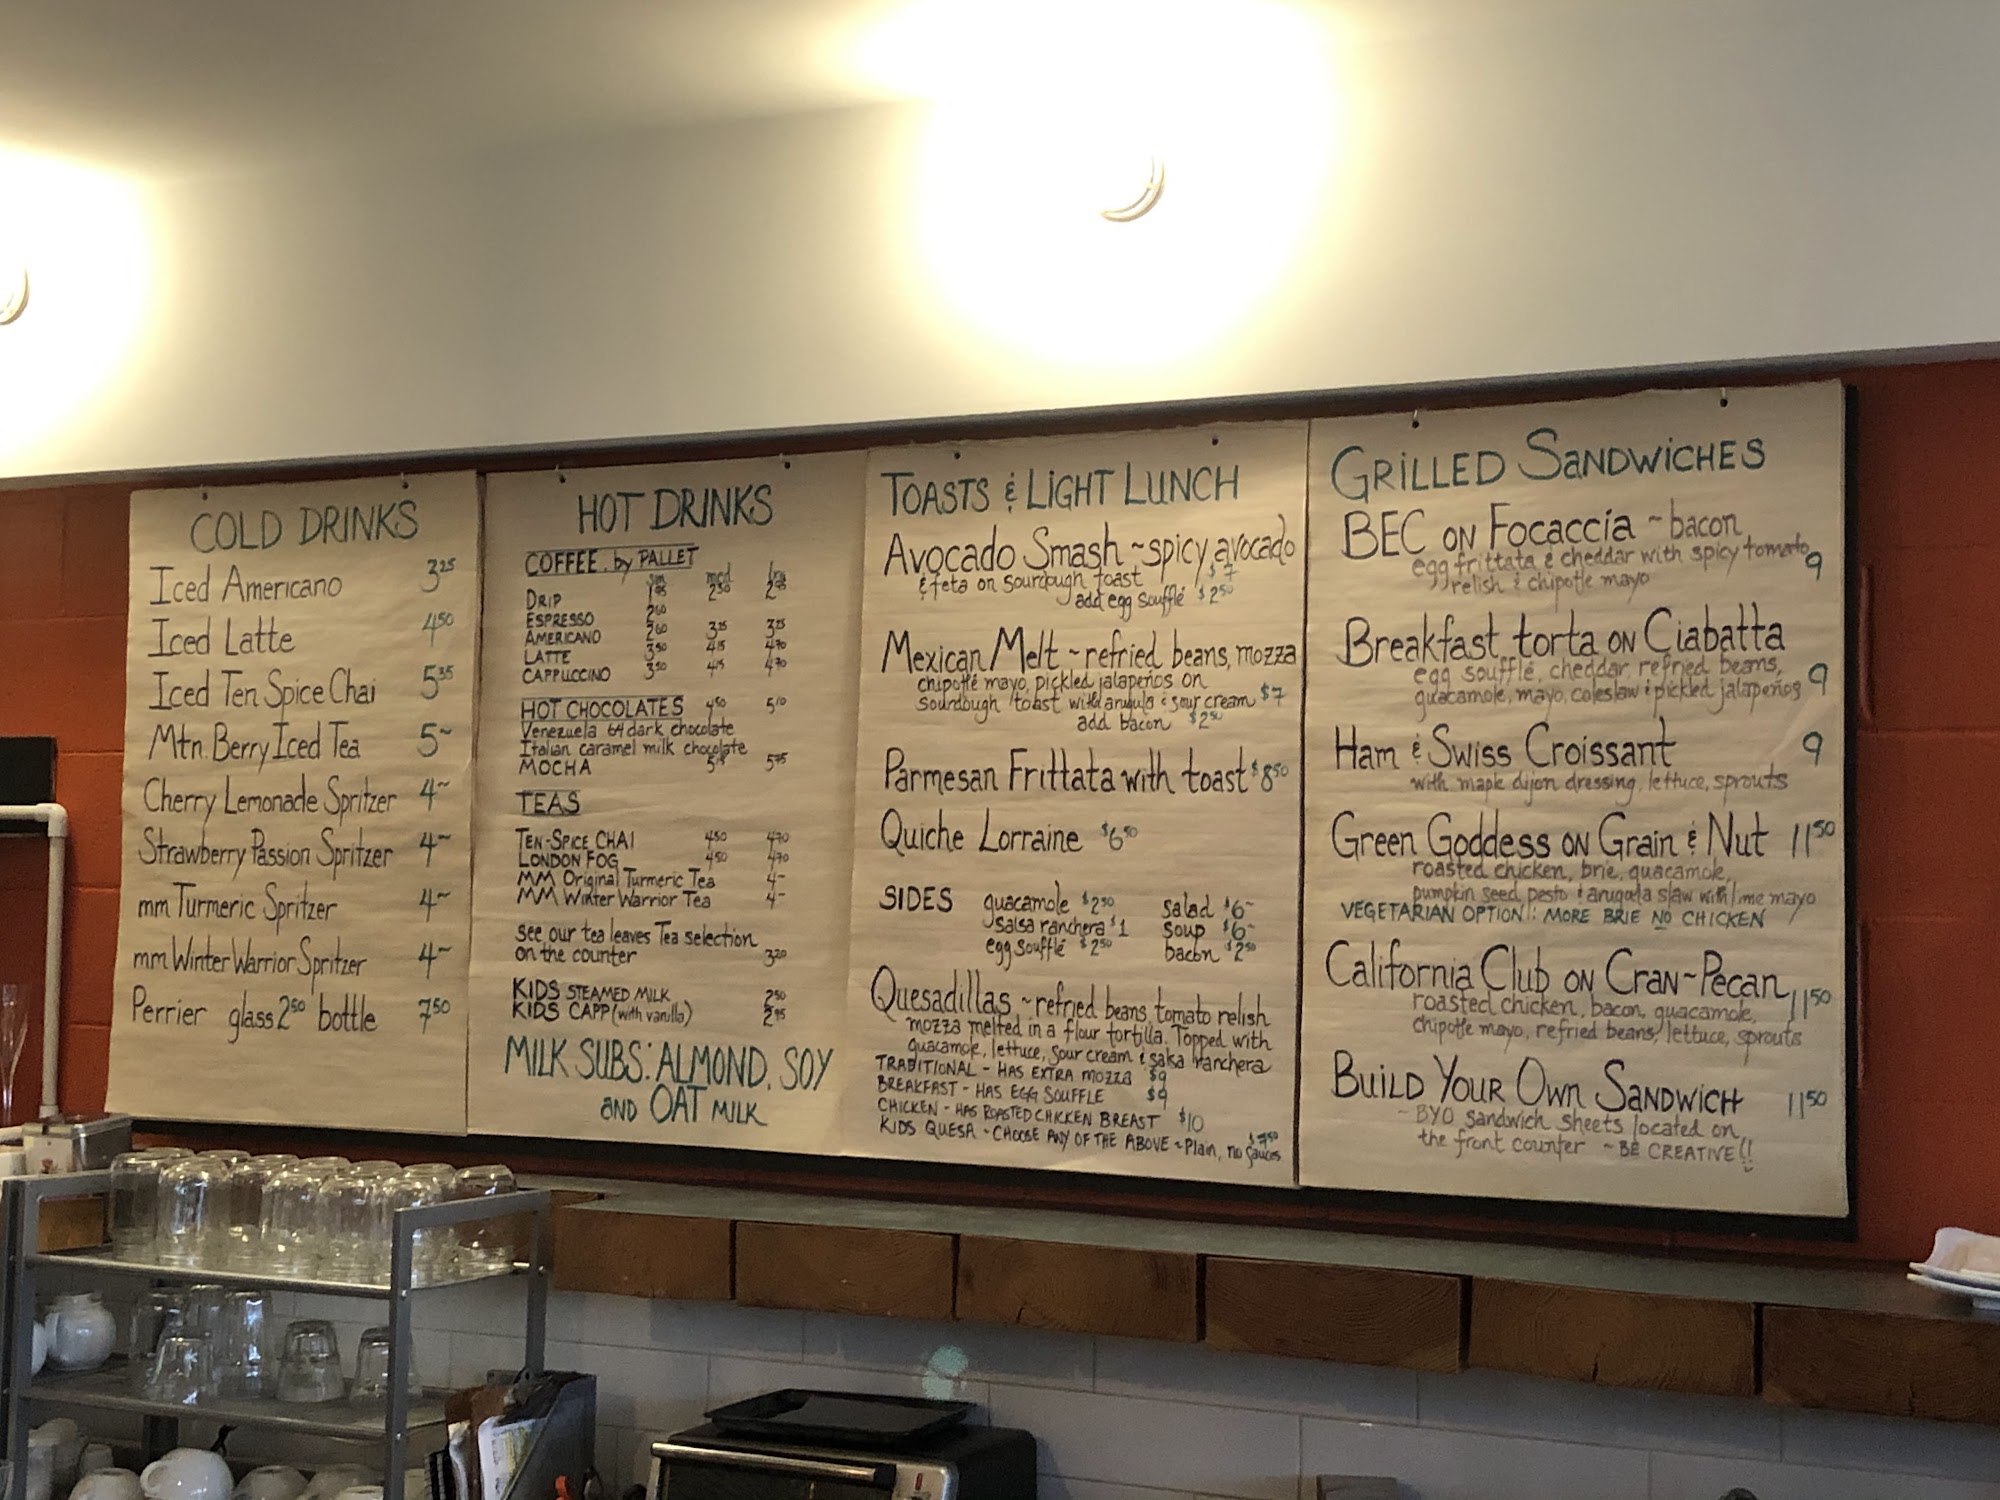 COLD DRINKS
Iced Americano 3 25
Iced Latte 4 50
Iced Ten Spice Chai 5 35
Mtn. Berry Iced Tea 5~
Cherry Lemonade Spritzer 4~
Strawberry Passion Spritzer 4~
mm Turmeric Spritzer 4~
mm Winter Warrior Spritzer 4~
Perrier glass 2 50 bottle 7 50
HOT DRINKS
COFFEE. by PALLET
sm med lrg
DRIP 1 95 2 50 2 95
ESPRESSO 2 60
AMERICANO 2 60 3 25 3 75
LATTE 3 50 4 15 4 70
CAPPUCCINO 3 50 4 15 4 70
HOT CHOCOLATES 4 50 5 10
Venezuela 64 dark chocolate
Italian caramel milk chocolate
MOCHA 5 15 5 75
TEAS
TEN-SPICE CHAI 4 50 4 70
LONDON FOG 4 50 4 70
MM Original Turmeric Tea 4~
MM Winter Warrior Tea 4~
see our tea leaves Tea selection
on the counter 3 20
KIDS STEAMED MILK 2 50
KIDS CAPP (with vanilla) 2 95
MILK SUBS: ALMOND, SOY
AND OAT MILK
TOASTS & LIGHT LUNCH
Avocado Smash ~ spicy avocado
& feta on sourdough toast $7
add egg soufflé $2 50
Mexican Melt ~ refried beans, mozza
chipotle mayo, pickled jalapeños on
sourdough toast with arugula & sour cream $7
add bacon $2 50
Parmesan Frittata with toast $8 50
Quiche Lorraine $6 50
SIDES guacamole $2 50 salad $6~
salsa ranchera $1 soup $6~
egg soufflé $2 50 bacon $2 50
Quesadillas ~ refried beans, tomato relish
mozza melted in a flour tortilla. Topped with
guacamole, lettuce, sour cream & salsa ranchera
TRADITIONAL - HAS EXTRA MOZZA $9
BREAKFAST - HAS EGG SOUFFLE $9
CHICKEN - HAS ROASTED CHICKEN BREAST $10
KIDS QUESA ~ CHOOSE ANY OF THE ABOVE ~ Plain, no sauces $7 50
GRILLED SANDWICHES
BEC ON FOCACCIA ~ bacon
egg frittata & cheddar with spicy tomato 9
relish & chipotle mayo
Breakfast torta ON Ciabatta
egg soufflé, cheddar, refried beans,
guacamole, mayo, coleslaw & pickled jalapeños 9
Ham & Swiss Croissant 9
with maple dijon dressing, lettuce, sprouts
Green Goddess ON Grain & Nut 11 50
roasted chicken, brie, guacamole,
pumpkin seed pesto & arugula slaw with lime mayo
VEGETARIAN OPTION: MORE BRIE NO CHICKEN
California Club ON Cran~Pecan
roasted chicken, bacon, guacamole, 11 50
chipotle mayo, refried beans, lettuce, sprouts
BUILD YOUR OWN SANDWICH 11 50
~ BYO sandwich sheets located on
the front counter ~ BE CREATIVE!!